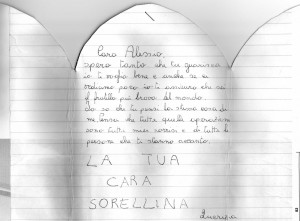 Caro Alessio,
spero tanto che tu guarisca
io ti voglio bene e anche se ci
vediamo poco io ti assicuro che sei
il fratello più bravo del mondo.
Io so che tu pensi la stessa cosa di
me pensa che tutte quelle operazioni
sono tutti miei sorrisi e di tutte le
persone che ti stanno accanto.
LA TUA
CARA
SORELLINA